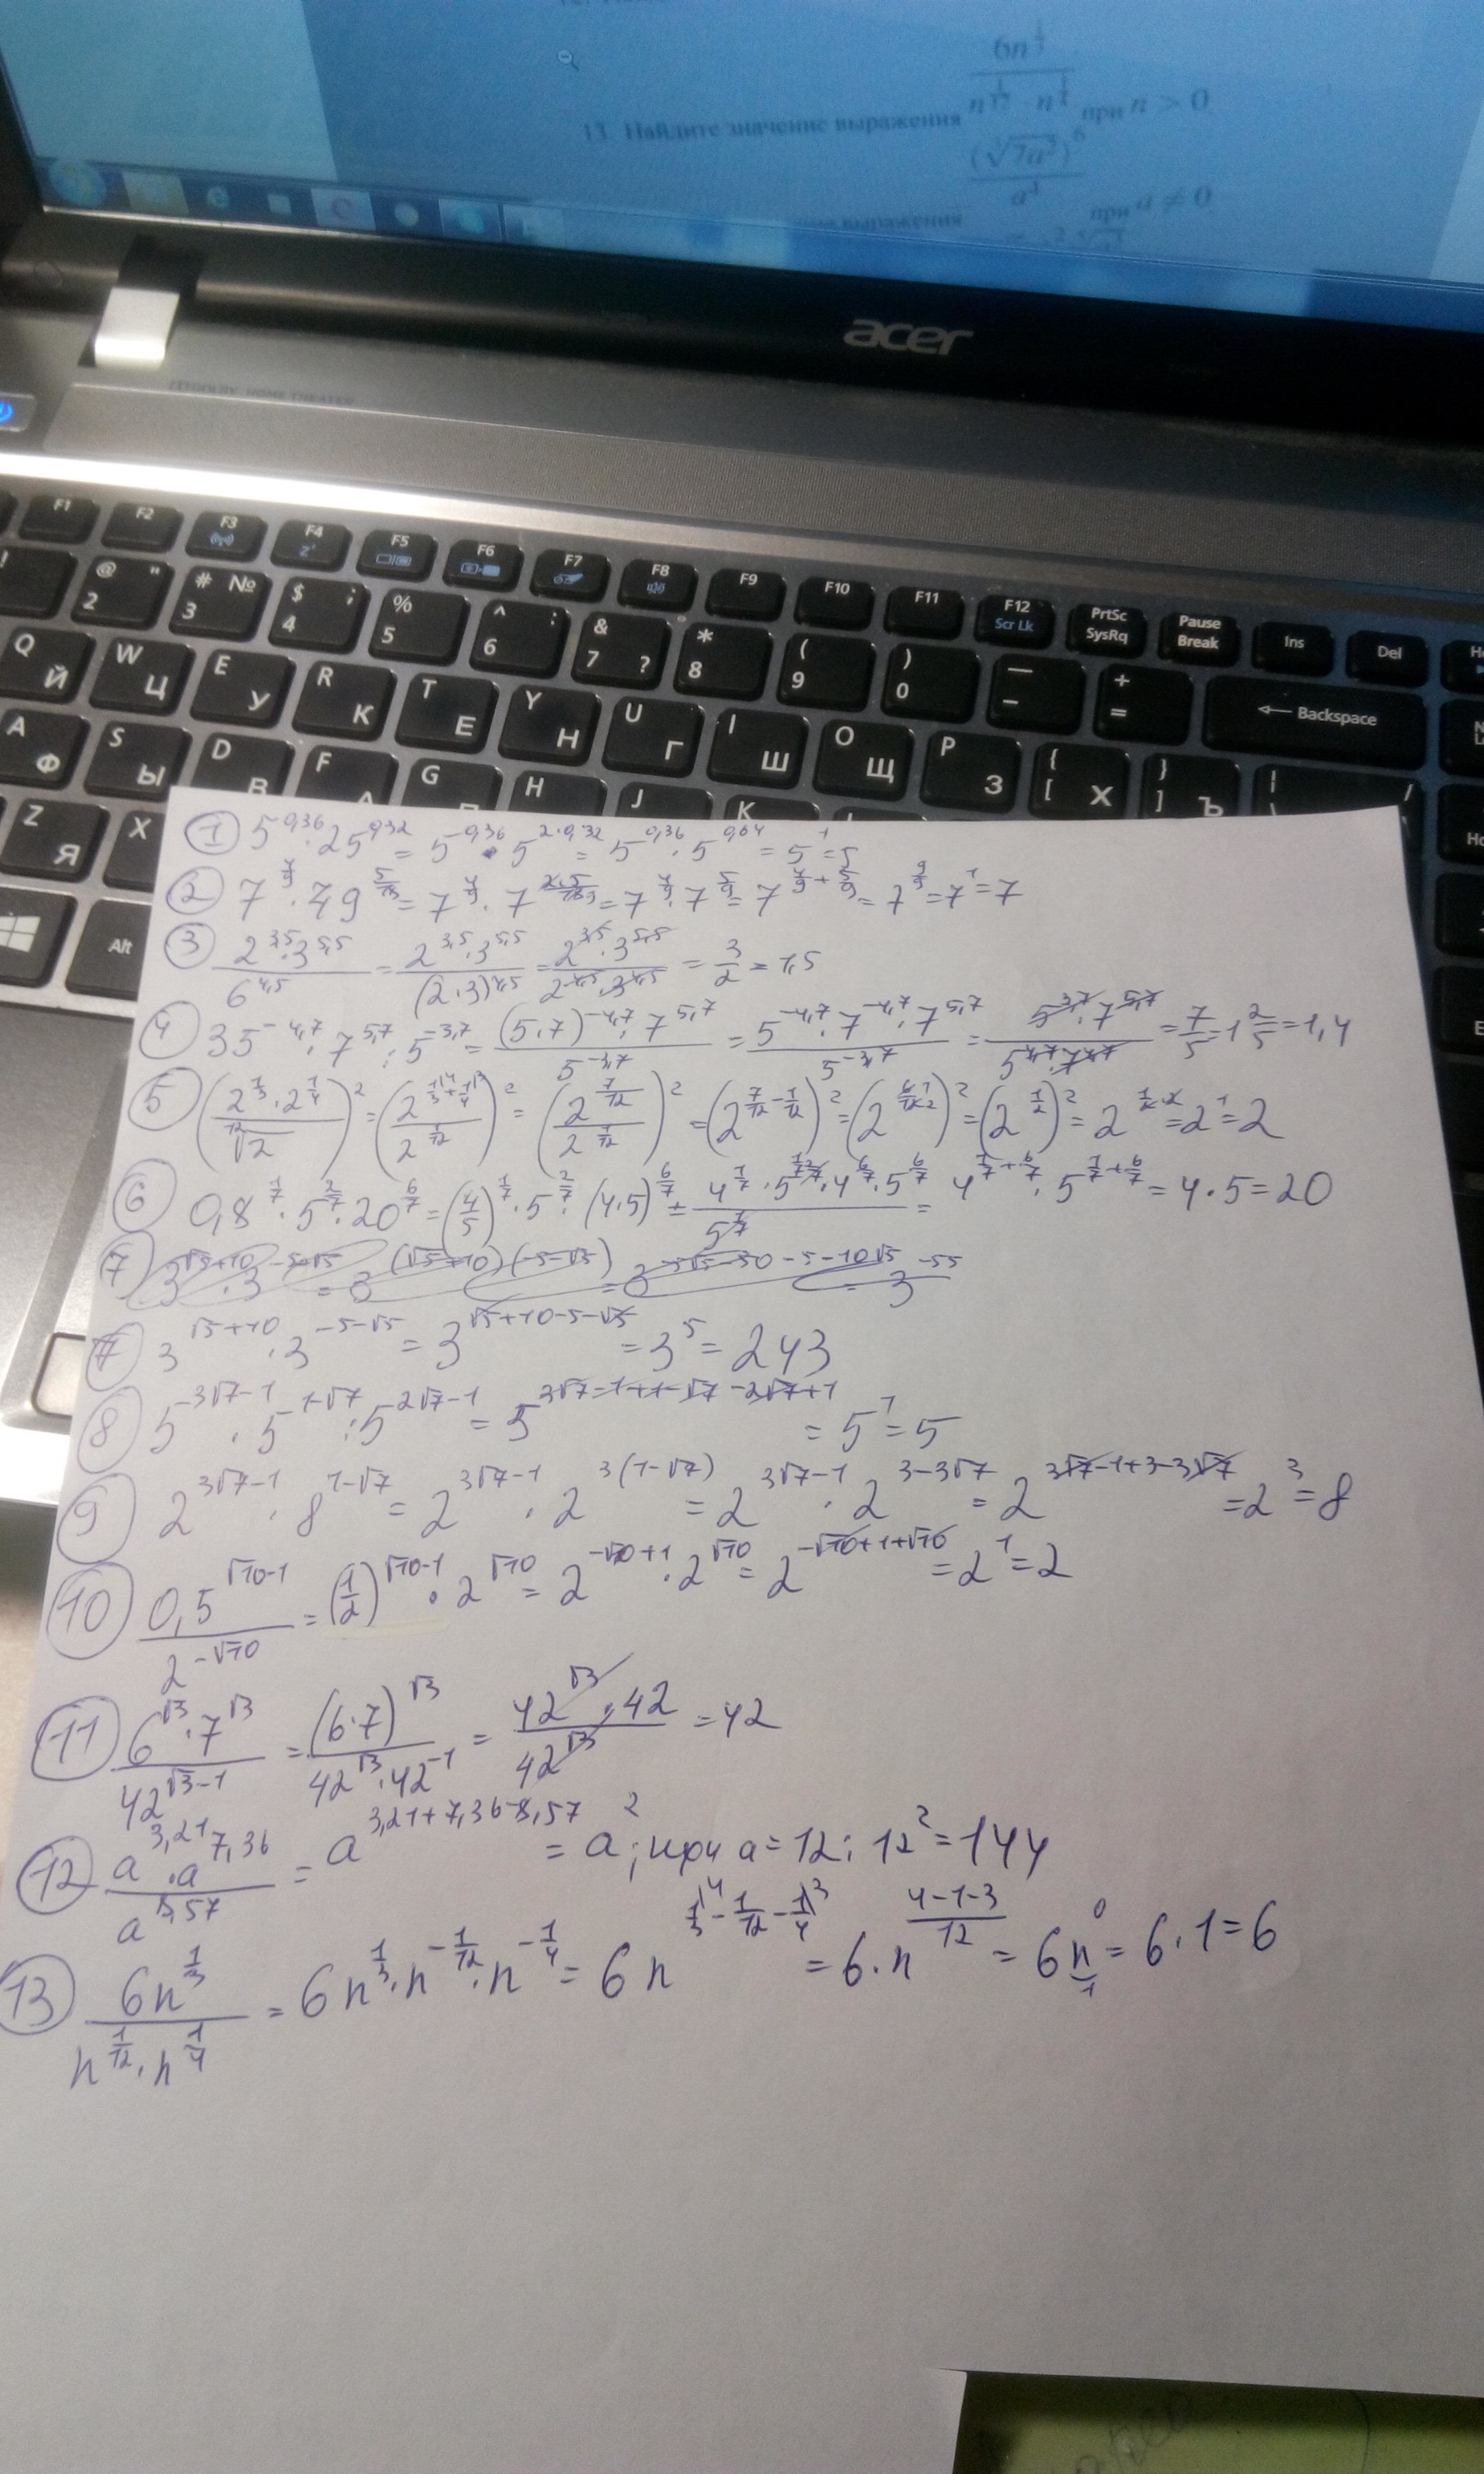 6n^{1/3}
13. Найдите значение выражения n^{1/12} · n^{1/4} при n > 0
(√7a²)^6
a^4
выражения при a ≠ 0
acer
DOLBY. HOME THEATER
F1 F2 F3 F4 F5 F6 F7 F8 F9 F10 F11 F12 Scr Lk PrtSc SysRq Pause Break Ins Del
! @ " 2 # № 3 $ ; 4 % 5 ^ : 6 & 7 ? * 8 ( 9 ) 0 — - + = ← Backspace
Q Й W Ц E У R К T Е Y Н U Г I Ш O Щ P З { [ Х } ] Ъ | \ /
A Ф S Ы D В F А G П H J K L
Z Я X
Alt
① 5^{0,36} · 25^{0,32} = 5^{0,36} · 5^{2·0,32} = 5^{0,36} · 5^{0,64} = 5^1 = 5
② 7^{4/9} · 49^{5/18} = 7^{4/9} · 7^{2·5/18 9} = 7^{4/9} · 7^{5/9} = 7^{4/9 + 5/9} = 7^{9/9} = 7^1 = 7
③ \frac{2^{3,5} · 3^{5,5}}{6^{4,5}} = \frac{2^{3,5} · 3^{5,5}}{(2·3)^{4,5}} = \frac{2^{3,5} · 3^{5,5}}{2^{4,5} · 3^{4,5}} = \frac{3}{2} = 1,5
④ 35^{-4,7} · 7^{5,7} : 5^{-3,7} = \frac{(5·7)^{-4,7} · 7^{5,7}}{5^{-3,7}} = \frac{5^{-4,7} · 7^{-4,7} · 7^{5,7}}{5^{-3,7}} = \frac{5^{3,7} · 7^{5,7}}{5^{4,7} · 7^{4,7}} = \frac{7}{5} = 1\frac{2}{5} = 1,4
⑤ (\frac{2^{1/3} · 2^{1/4}}{\sqrt[12]{2}})^2 = (\frac{2^{1/3 + 1/4}}{2^{1/12}})^2 = (\frac{2^{7/12}}{2^{1/12}})^2 = (2^{7/12 - 1/12})^2 = (2^{6 1/12 2})^2 = (2^{1/2})^2 = 2^{1/2 · 2} = 2^1 = 2
⑥ 0,8^{1/7} · 5^{2/7} · 20^{6/7} = (\frac{4}{5})^{1/7} · 5^{2/7} · (4·5)^{6/7} = \frac{4^{1/7} · 5^{2/7} · 4^{6/7} · 5^{6/7}}{5^{1/7}} = 4^{1/7 + 6/7} · 5^{1/7 + 6/7} = 4·5 = 20
⑦ 3^{√5+10} · 3^{-5-√5} = 3^{(√5+10)(-5-√5)} = 3^{-5√5-50-5-10√5} = 3^{-55}
⑦ 3^{√5+10} · 3^{-5-√5} = 3^{√5+10-5-√5} = 3^5 = 243
⑧ 5^{3√7-1} · 5^{1-√7} : 5^{2√7-1} = 5^{3√7-1+1-√7-2√7+1} = 5^1 = 5
⑨ 2^{3√7-1} · 8^{1-√7} = 2^{3√7-1} · 2^{3(1-√7)} = 2^{3√7-1} · 2^{3-3√7} = 2^{3√7-1+3-3√7} = 2^3 = 8
⑩ \frac{0,5^{√10-1}}{2^{-√10}} = (\frac{1}{2})^{√10-1} · 2^{√10} = 2^{-√10+1} · 2^{√10} = 2^{-√10+1+√10} = 2^1 = 2
⑪ \frac{6^{√3} · 7^{√3}}{42^{√3-1}} = \frac{(6·7)^{√3}}{42^{√3} · 42^{-1}} = \frac{42^{√3} · 42}{42^{√3}} = 42
⑫ \frac{a^{3,21} · a^{7,36}}{a^{8,57}} = a^{3,21+7,36-8,57} = a^2; при a = 12; 12^2 = 144
⑬ \frac{6n^{1/3}}{n^{1/12} · n^{1/4}} = 6n^{1/3} · n^{-1/12} · n^{-1/4} = 6n^{1/3 - 1/12 - 1/4} = 6·n^{\frac{4-1-3}{12}} = 6n^0 = 6·1 = 6